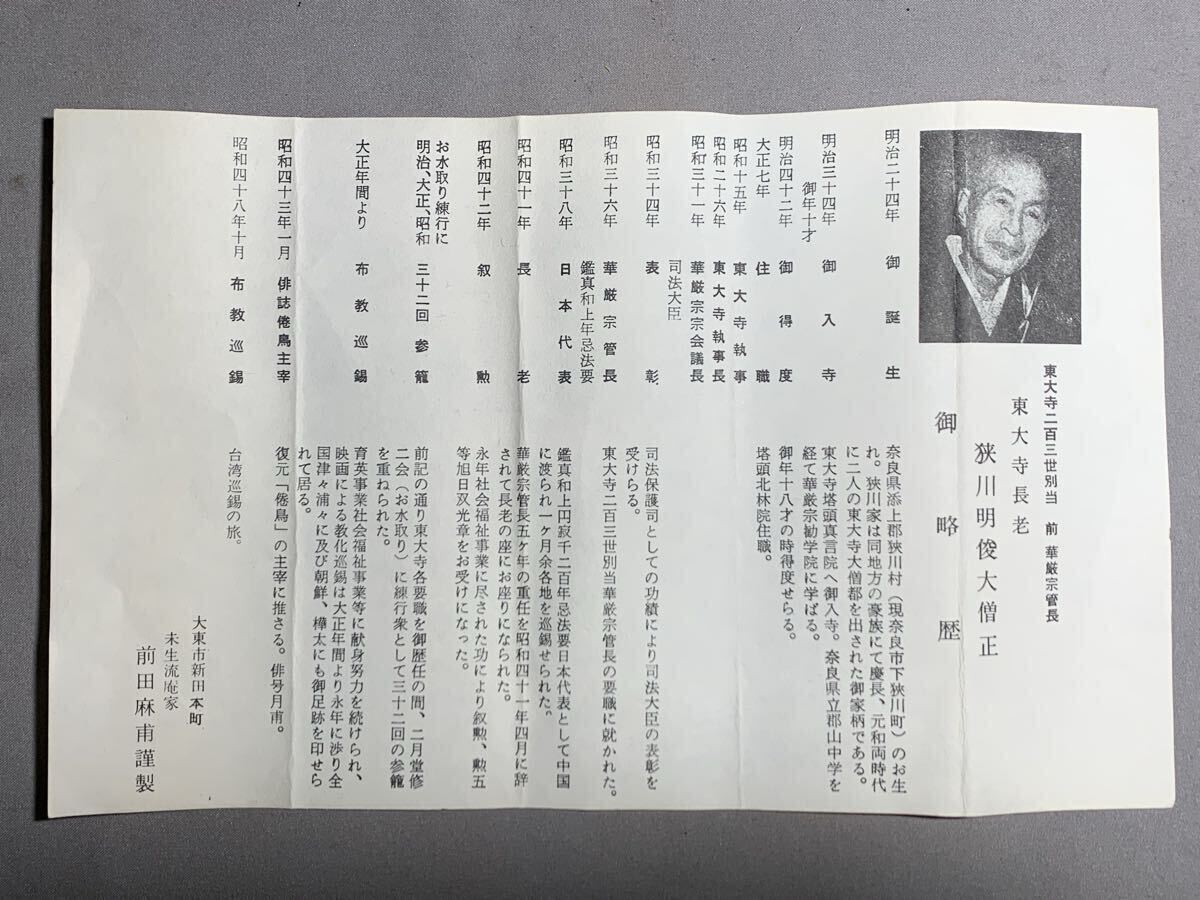 東大寺二百三世別当　前　華厳宗管長
東大寺長老
狭川明俊大僧正
御略歴
明治二十四年　御誕生　奈良県添上郡狭川村（現奈良市下狭川町）のお生
れ。狭川家は同地方の豪族にて慶長、元和両時代
に二人の東大寺大僧都を出された御家柄である。
明治三十四年　御入寺　東大寺塔頭真言院へ御入寺。奈良県立郡山中学を
御年十才
経て華厳宗勧学院に学ばる。
明治四十二年　御得度　御年十八才の時得度せらる。
大正七年　住職　塔頭北林院住職。
昭和十五年　東大寺執事
昭和二十六年　東大寺執事長
昭和三十一年　華厳宗宗会議長
司法大臣
昭和三十四年　表彰　司法保護司としての功績により司法大臣の表彰を
受けらる。
昭和三十六年　華厳宗管長　東大寺二百三世別当華厳宗管長の要職に就かれた。
鑑真和上年忌法要
昭和三十八年　日本代表　鑑真和上円寂千二百年忌法要日本代表として中国
に渡られ一ヶ月余各地を巡錫せられた。
昭和四十一年　長老　華厳宗管長五ヶ年の重任を昭和四十一年四月に辞
されて長老の座にお座りになられた。
昭和四十二年　叙勲　永年社会福祉事業に尽された功により叙勲、勲五
等旭日双光章をお受けになった。
お水取り練行に
明治、大正、昭和　三十二回参籠　前記の通り東大寺各要職を御歴任の間、二月堂修
二会（お水取り）に練行衆として三十二回の参籠
を重ねられた。
大正年間より　布教巡錫　育英事業社会福祉事業等に献身努力を続けられ、
映画による教化巡錫は大正年間より永年に渉り全
国津々浦々に及び朝鮮、樺太にも御足跡を印せら
れて居る。
昭和四十三年一月　俳誌倦鳥主宰　復元「倦鳥」の主宰に推さる。俳号月甫。
昭和四十八年十月　布教巡錫　台湾巡錫の旅。
大東市新田本町
未生流庵家
前田麻甫謹製